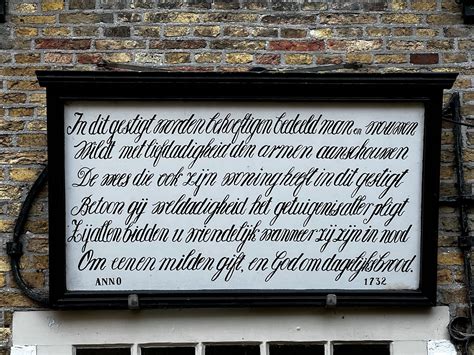 In dit gestigt worden behoeftigen bedeeld man en vrouwen
Wildt met lifdadigheid den armen aanschouwen
De wees die ook zijn woning heeft in dit gestigt
Betoon gij weldadigheid het getuigenis aller pligt
Zij allen bidden u vriendelijk wanneer zij zijn in nood
Om eenen milden gift, en God om dagelijksbrood.
ANNO 1732